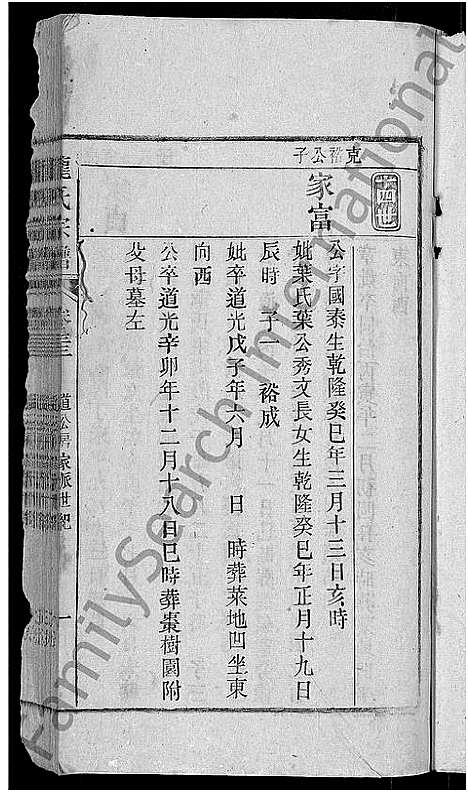 克裕公子
家富
公字國泰生乾隆癸巳年三月十三日亥時
妣葉氏葉公秀文長女生乾隆癸巳年正月十九日
辰時 子一 裕成
妣卒道光戊子年六月 日 時葬萊地凹坐東
向西
公卒道光辛卯年十二月十八日巳時葬棗樹園附
父母墓左
龍氏宗譜
道公房 家派世紀
一
FamilySearch International